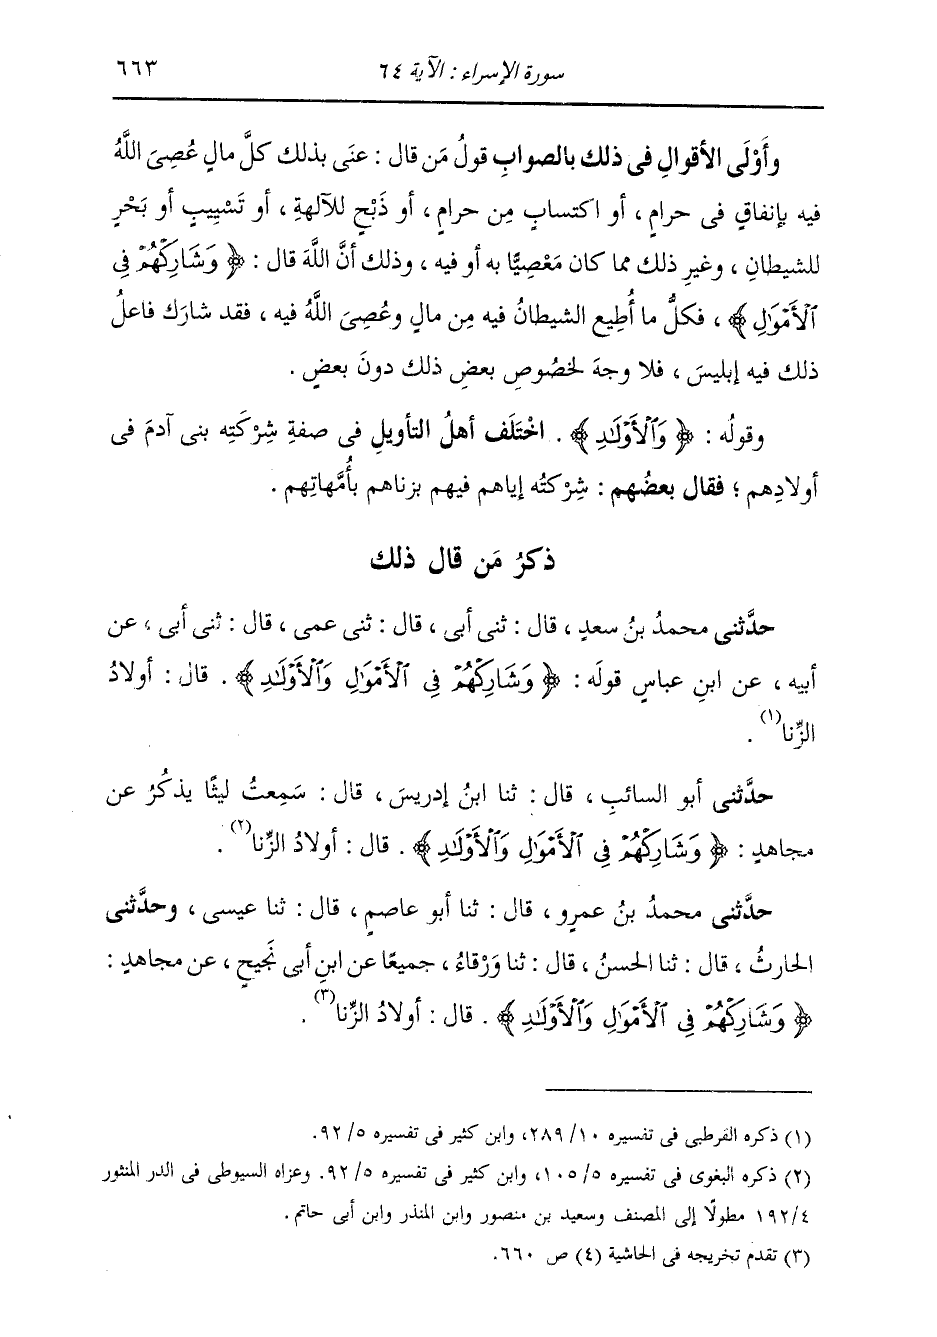 سورة الإسراء : الآية ٦٤
٦٦٣
وأَوْلَى الأقوالِ فى ذلك بالصوابِ قولُ مَن قال : عنَى بذلك كلَّ مالٍ عُصِىَ اللَّهُ
فيه بإنفاقٍ فى حرامٍ ، أو اكتسابٍ مِن حرامٍ ، أو ذَبْحٍ للآلهةِ ، أو تَسْيِيبٍ أو بَحْرٍ
للشيطانِ ، وغيرِ ذلك مما كان مَعْصِيًّا به أو فيه ، وذلك أنَّ اللَّهَ قال : ﴿ وَشَارِكْهُمْ فِى
ٱلْأَمْوَٰلِ ﴾ ، فكلُّ ما أُطِيع الشيطانُ فيه مِن مالٍ وعُصِىَ اللَّهُ فيه ، فقد شارك فاعلُ
ذلك فيه إبليسَ ، فلا وجهَ لخصُوصِ بعضِ ذلك دونَ بعضٍ .
وقولُه : ﴿ وَٱلْأَوْلَٰدِ ﴾ . اختَلَف أهلُ التأويلِ فى صفةِ شِرْكَتِه بنى آدمَ فى
أولادِهم ؛ فقال بعضُهم : شِرْكتُه إياهم فيهم بزناهم بأُمَّهاتِهم .
ذكرُ مَن قال ذلك
حدَّثنى محمدُ بنُ سعدٍ ، قال : ثنى أبى ، قال : ثنى عمى ، قال : ثنى أبى ، عن
أبيه ، عن ابنِ عباسٍ قولَه : ﴿ وَشَارِكْهُمْ فِى ٱلْأَمْوَٰلِ وَٱلْأَوْلَٰدِ ﴾ . قال : أولادُ
الزِّنا(١) .
حدَّثنى أبو السائبِ ، قال : ثنا ابنُ إدريسَ ، قال : سَمِعتُ ليثًا يذكُرُ عن
مجاهدٍ : ﴿ وَشَارِكْهُمْ فِى ٱلْأَمْوَٰلِ وَٱلْأَوْلَٰدِ ﴾ . قال : أولادُ الزِّنا(٢) .
حدَّثنى محمدُ بنُ عمرٍو ، قال : ثنا أبو عاصمٍ ، قال : ثنا عيسى ، وحدَّثنى
الحارثُ ، قال : ثنا الحسنُ ، قال : ثنا وَرْقاءُ ، جميعًا عن ابنِ أبى نَجيحٍ ، عن مجاهدٍ :
﴿ وَشَارِكْهُمْ فِى ٱلْأَمْوَٰلِ وَٱلْأَوْلَٰدِ ﴾ . قال : أولادُ الزِّنا(٣) .
(١) ذكره القرطبى فى تفسيره ١٠/ ٢٨٩، وابن كثير فى تفسيره ٥/ ٩٢.
(٢) ذكره البغوى فى تفسيره ٥/ ١٠٥، وابن كثير فى تفسيره ٥/ ٩٢. وعزاه السيوطى فى الدر المنثور
٤/ ١٩٢ مطولًا إلى المصنف وسعيد بن منصور وابن المنذر وابن أبى حاتم .
(٣) تقدم تخريجه فى الحاشية (٤) ص ٦٦٠.